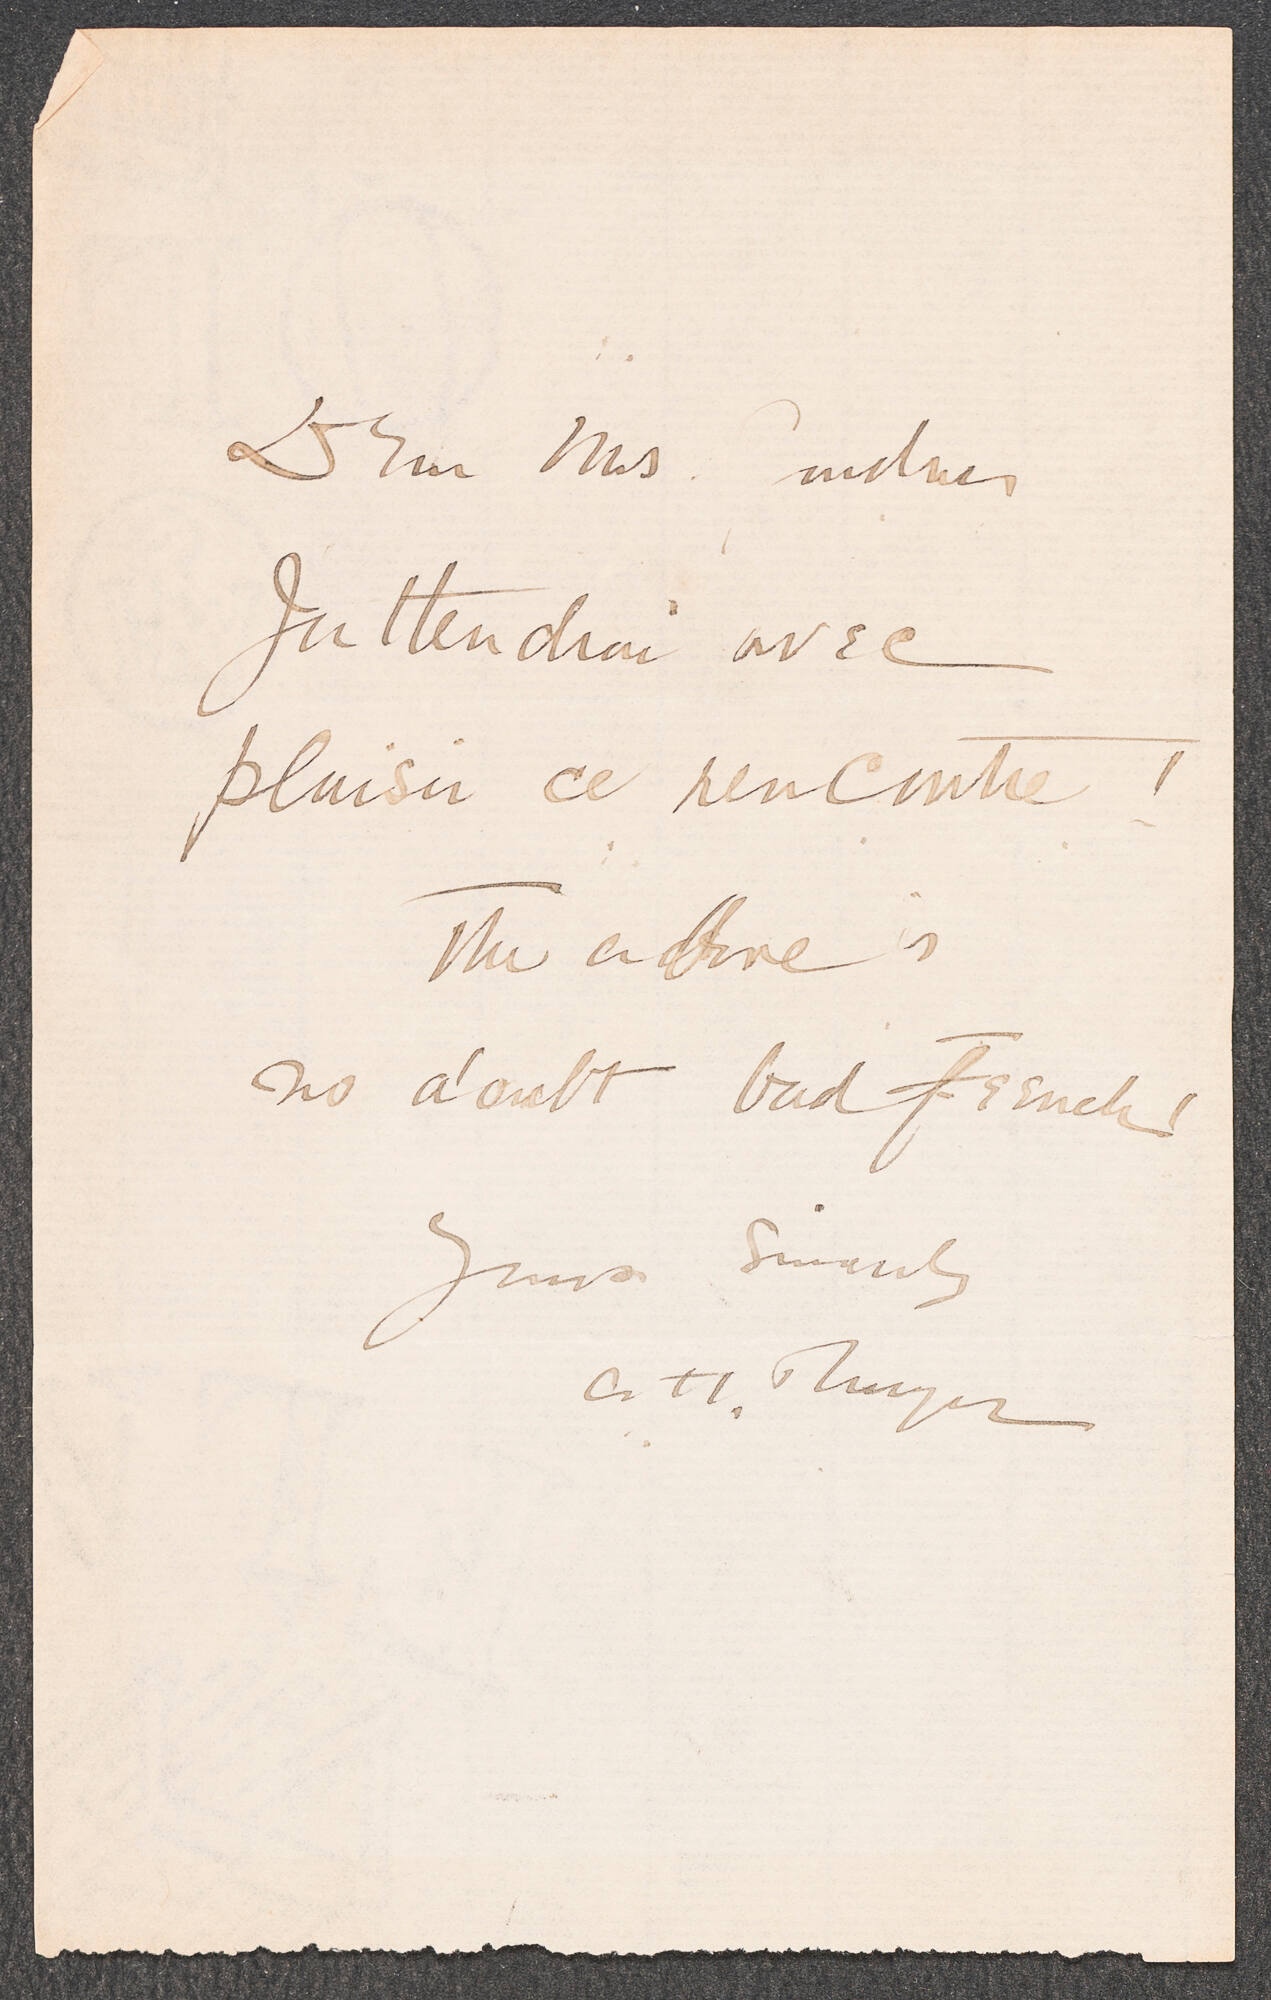 Dear Mrs.
J'attendrai avec
plaisir ce rencontre!
The above is
no doubt bad French!
Yours sincerely
A. H. Thayer